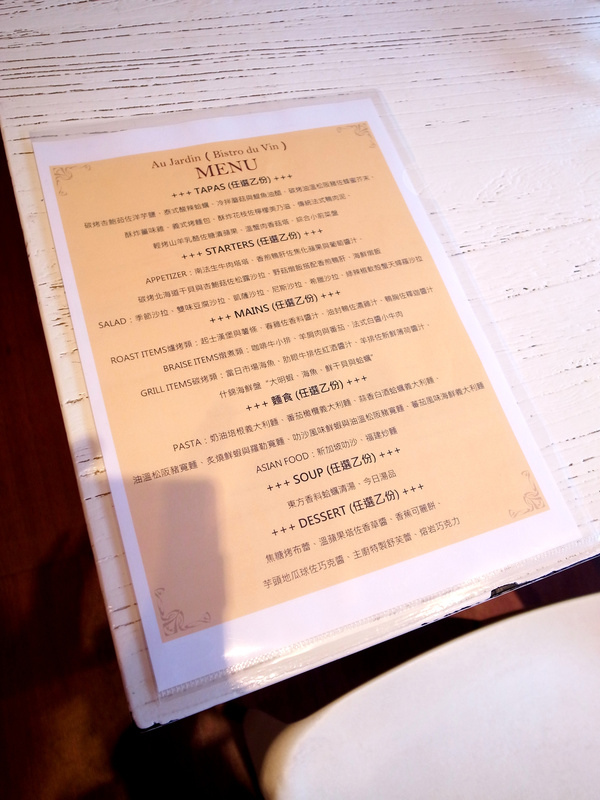 Au Jardin ( Bistro du Vin )
MENU
+++ TAPAS (任選乙份) +++
碳烤杏鮑菇佐洋芋鹽、泰式酸辣蛤蠣、冷拌蘑菇與鯷魚油醋、碳烤油溫松阪豬佐蜂蜜芥末、
酥炸薑味雞、義式烤麵包、酥炸花枝佐檸檬美乃滋、傳統法式鴨肉派、
輕烤山羊乳酪佐糖漬蘋果、溫蟹肉香菇塔、綜合小前菜盤
+++ STARTERS (任選乙份) +++
APPETIZER：南法生牛肉塔塔、香煎鴨肝佐焦化蘋果與葡萄醬汁、
碳烤北海道干貝與杏鮑菇佐松露沙拉、野菇燉飯搭配香煎鴨肝、海鮮燉飯
SALAD：季節沙拉、雙味豆腐沙拉、凱薩沙拉、尼斯沙拉、希臘沙拉、綠辣椒軟殼蟹天婦羅沙拉
+++ MAINS (任選乙份) +++
ROAST ITEMS爐烤類：起士漢堡與薯條、春雞佐香料醬汁、油封鴨佐濃雞汁、鴨胸佐釋迦醬汁
BRAISE ITEMS燉煮類：咖啡牛小排、羊肩肉與番茄、法式白醬小牛肉
GRILL ITEMS碳烤類：當日市場海魚、肋眼牛排佐紅酒醬汁、羊排佐新鮮薄荷醬汁、
什錦海鮮盤 "大明蝦、海魚、鮮干貝與蛤蠣"
+++ 麵食 (任選乙份) +++
PASTA：奶油培根義大利麵、番茄橄欖義大利麵、蒜香白酒蛤蠣義大利麵、
油溫松阪豬寬麵、炙燒鮮蝦與羅勒寬麵、叻沙風味鮮蝦與油溫松阪豬寬麵、蕃茄風味海鮮義大利麵
ASIAN FOOD：新加坡叻沙、福建炒麵
+++ SOUP (任選乙份) +++
東方香料蛤蠣清湯、今日湯品
+++ DESSERT (任選乙份) +++
焦糖烤布蕾、溫蘋果塔佐香草醬、香蕉可麗餅、
芋頭地瓜球佐巧克醬、主廚特製舒芙蕾、熔岩巧克力